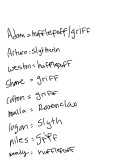 Adam = hufflepuff/griff
Arturo = slytherin
weston = hufflepuff
Shane = griff
colton = griff
malia = Ravenclaw
logan = Slyth
niles = griff
= hufflepuff